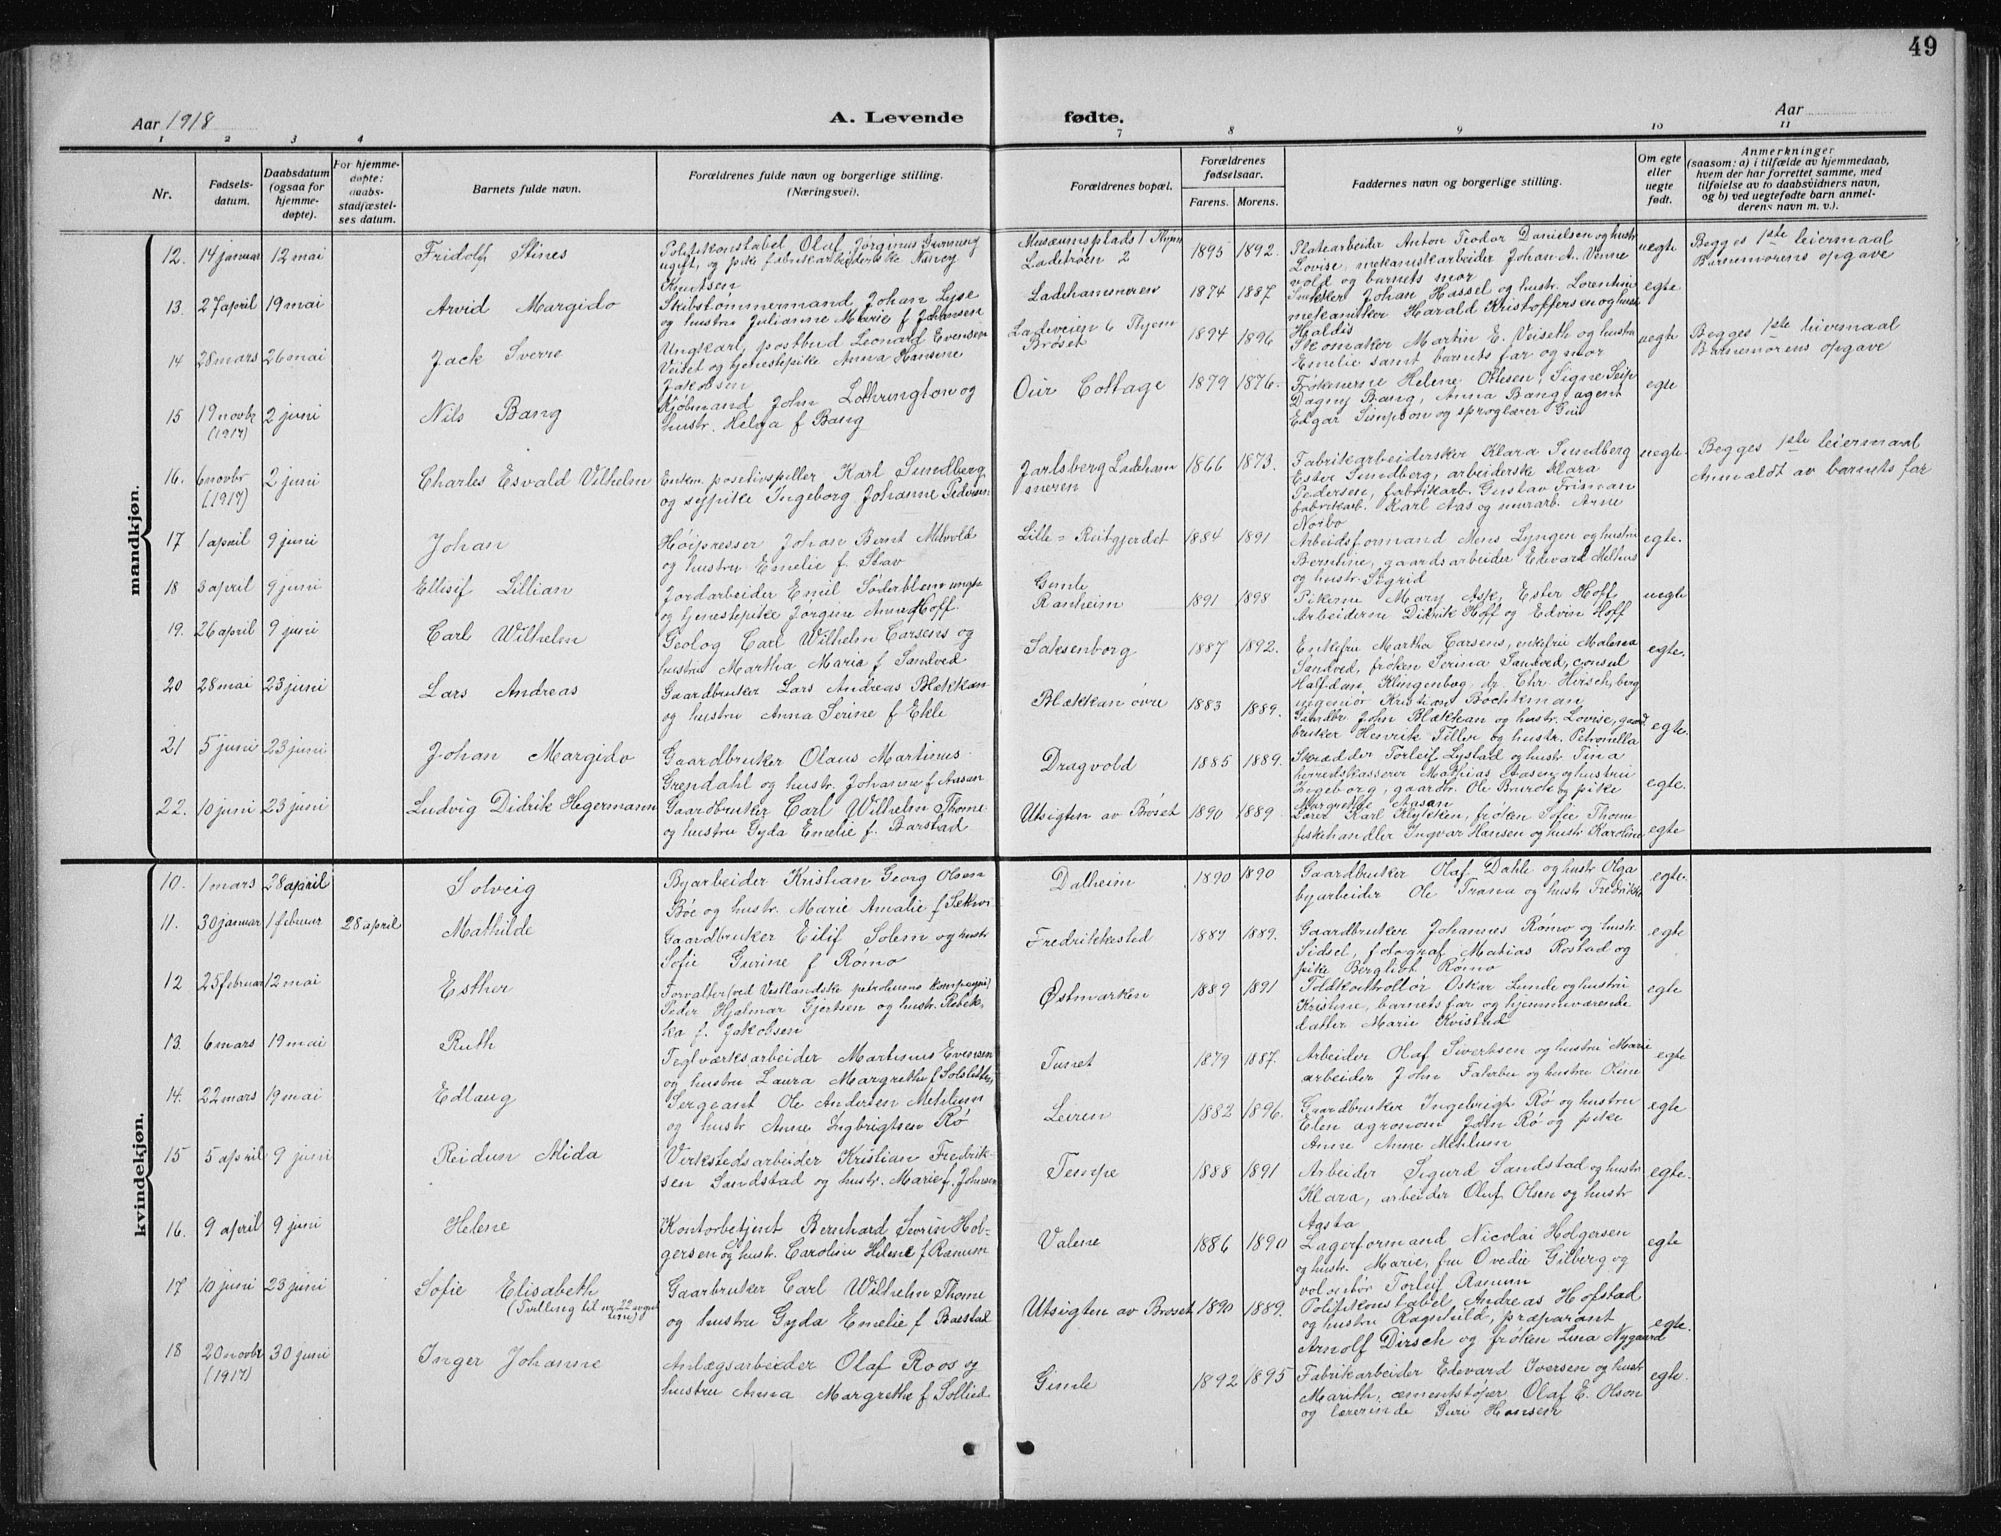 49
Aar 1918
A. Levende fødte.
Aar
1 2 3 4 7 8 9 10 11
Nr.
Fødsels-
datum.
Daabsdatum
(ogsaa for
hjemme-
døpte).
For hjemme-
døpte:
daabs-
stadfæstel-
ses datum.
Barnets fulde navn.
Forældrenes fulde navn og borgerlige stilling.
(Næringsvei).
Forældrenes bopæl.
Forældrenes
fødselsaar.
Farens. Morens.
Faddernes navn og borgerlige stilling.
Om egte
eller
uegte
født.
Anmerkninger
(saasom: a) i tilfælde av hjemmedaab,
hvem der har forrettet samme, med
tilføielse av to daabsvidners navn,
og b) ved uegtefødte barn anmel-
derens navn m. v.).
mandkjøn.
12. 14 januar 12 mai Fridolf Stines
Politikonstabel Olaf Jørginus
ugift, og pike fabrikarbeiderske Nancy
Knutsen
Museumsplads 1 Thjem
Ladetroen 2
1895 1892.
Platearbeider Anton Teodor Danielsen og hustr
Lovise, mekaniskarbeider Johan A. Venne
vold og barnets mor
uegte
Begges 1ste leiermaal
Barnemorens opgave
13. 27 april 19 mai Arvid Margido
Skibstømmermand Johan Lyse
og hustru Julianne Marie f Johansen
Ladehammeren
1874 1887
Johan Hassel og hustr. Lorentine
mekaniker Harald Kristoffersen og hustr
Haldis
egte
14 28 mars 26 mai Jack Sverre
Ungkarl, postbud Leonard Evensen
Veitet og tjenestepike Anna Hansine
Jakobsen
Ladeveien 6 Thjem
Brøset
1894 1896
Skomaker Martin E. Veiseth og hustru
Emelie samt barnets far og mor
uegte
Begges 1ste leiermaal
Barnemorens opgave
15 19 novbr (1917) 2 juni Nils Bang
Kjøbmand John Lothrington og
hustr. Helga f Bang
Our Cottage
1879 1876.
Frøknerne Helene Olsen, Signe Seip
Dagny Bang, Anna Bang, agent
Edgar Simpson og sproglærer
egte
16. 6 novbr (1917) 2 juni Charles Esvald Vilhelm
Enkm. positivspiller Karl Sundberg
og sypike Ingeborg Johanne Pedersen
Jarlsberg Ladeham
meren
1866 1873.
Fabrikarbeidersker Klara Sundberg
Ester Sundberg, arbeiderske Klara
Pedersen, fabrikarb. Gustav Frisman
fabrikarb. Karl Aas og murarb. Arne
Noibo
uegte
Begges 1ste leiermaal
Anmeldt av barnets far
17 1 april 9 juni Johan
Høipresser Johan Bernt Melvold
og hustru Emelie f Stav
Lille = Reitgjerdet
1884 1891
Arbeidsformand Mons Lyngen og hustru
Berntine, gaardsarbeider Edvard Melhus
og hustr. Sigrid
egte.
18 3 april 9 juni Ellisif Lillian
Jordarbeider Emil Söderblom ungk
og tjenestepike Jørgine Anna Hoff
Gimle
Ranheim
1891 1898
Pikerne Mary Ask, Ester Hoff
Arbeiderne Didrik Hoff og Edvin Hoff
uegte
19. 26 april 9 juni Carl Wilhelm
Geolog Carl Wilhelm Carsens og
hustru Martha Maria f Sandved
Saksenborg
1887 1892.
Enkefru Martha Carsens, enkefru Malena
Sandved, frøken Serina Sandved, consul
Halfdan Klingenberg, dr. Chr. Hirsch, berg
ingeniør Kristian Bochkman
egte.
20 28 mai 23 juni Lars Andreas
Gaardbruker Lars Andreas Blækkan
og hustru Anna Serine f Ekle
Blækkan øvre
1883 1889.
Gaardbr John Blækkan og hustr. Lovise, gaard
bruker Henrik Tiller og hustr. Petronella
egte.
21 5 juni 23 juni Johan Margido
Gaardbruker Olaus Martinus
Grendahl og hustr. Johanne f Aasan
Dragvold
1885 1889.
Skrædder Torleif Lystad og hustr. Tina
herredskasserer Mathias Aasen og hustru
Ingeborg, gaardbr. Ole Brurok og pike
Margrethe Aasan
egte.
22. 10 juni 23 juni Ludvig Didrik Hegermann
Gaardbruker Carl Wilhelm Thome
og hustru Gyda Emelie f. Barstad
Utsigten av Brøset
1890 1889
Lærer Karl Klykken, frøken Sofie Thome
fiskehandler Ingvar Hansen og hustr. Karoline
egte
kvindekjøn.
10. 1 mars 28 april Solveig
Byarbeider Kristian Georg Olsen
Bøe og hustr. Marie Amalie f Sækvi
Dalheim
1890 1890
Gaardbruker Olaf Dahle og hustr Olga
byarbeider Ole Trana og hustr Fredrikke
egte.
11. 30 januar 1 februar 28 april Mathilde
Gaardbruker Eilif Solem og hustr
Sofie Gurine f Romo
Fredrikkested
1887 1889.
Gaardbruker Johannes Rømo og hustr.
Sidsel, fotograf Matias Rostad og
pike Bergliot Rømo
egte
12 25 februar 12 mai Esther
Forvalter (ved Vestlandske petroleums kompagni)
Peder Hjalmar Gjertsen og hustr. Rebek-
ka f. Jakobsen
Østmarken
1889 1891
Toldkontrollør Oskar Lunde og hustru
Kristine, barnets far og hjemmeværende
datter Marie Kvistad
egte
13. 6 mars 19 mai Ruth
Teglværksarbeider Martinus Evensen
og hustru Laura Margrethe f Solsletten
Tunet
1879 1887.
Arbeider Olaf Sivertsen og hustru Marie
arbeider John Fahrbu og hustru Oline
egte
14. 22 mars 19 mai Edlaug
Sergeant Ole Andersen Mehlum
og hustr Anne Ingbrigtsen Rø
Leiren
1882 1896.
Gaardbruker Ingebrigt Rø og hustru
Elen agronom John Rø og pike
Anne Anne Mehlum
egte
15 5 april 9 juni Reidun Alida
Verkstedsarbeider Kristian Fredrik-
sen Sandstad og hustr. Marie f. Johnsen
Tempe
1888 1891
Arbeider Sigurd Sandstad og hustr
Klara, arbeider Oluf Olsen og hustr
Aasta
egte.
16. 9 april 9 juni Helene
Kontorbetjent Bernhard Severin Hol-
gersen og hustr. Caroline Helene f Ranum
Valene
1886 1890
Lagerformand Nicolai Holgersen
og hustr. Marie, fru Ovedie Gilberg og
volontør Torleif Ranum
egte
17 10 juni 23 juni Sofie Elisabeth
(Tvilling til nr. 22 ovgut
Gaarbruker Carl Wilhelm Thome
og hustru Gyda Emelie f Barstad
Utsigten av Brøset
1890 1889.
Politikonstabel Andreas Hofstad
og hustru Ragnhild, præparant
Arnolf Dirsch og frøken Lina Nygaard
egte.
18 20 novbr (1917) 30 juni Inger Johanne
Anlægsarbeider Olaf Roos og
hustru Anna Margrethe f Sollied
Gimle
1892 1895
Fabrikarbeider Edevard Iversen og hustr
Marith, cementstøper Olaf E. Olson
og lærerinde Guri Hansen
egte.